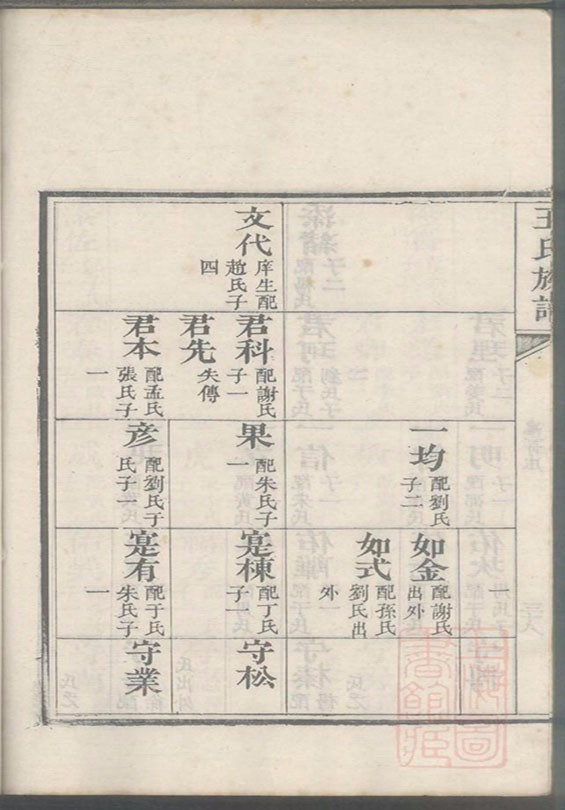 王氏族譜
文代 庠生配趙氏子四
君科 配謝氏子一
君先 失傳
君本 配孟氏張氏子一
一均 配劉氏子二
果 配朱氏子一
彦 配劉氏子氏子一
如金 配謝氏出外
如式 配孫氏劉氏出外
寔棟 配丁氏子一
寔有 配于氏朱氏子一
守松
守業